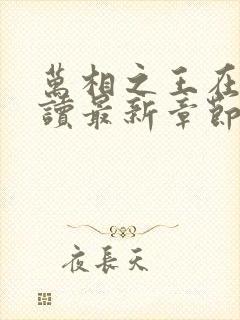 萬相之王在
讀最新章節
夜長天